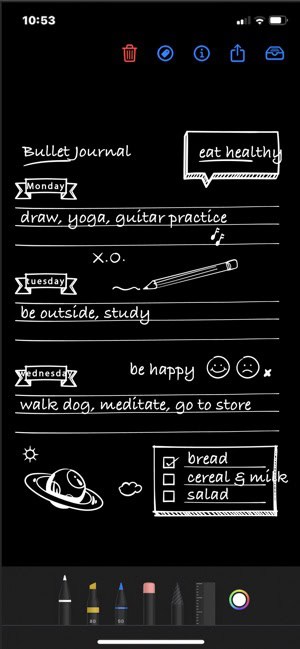 10:53
Bullet Journal
eat healthy
Monday
draw, yoga, guitar practice
X.O.
tuesday
be outside, study
be happy
wednesday
walk dog, meditate, go to store
bread
cereal & milk
salad